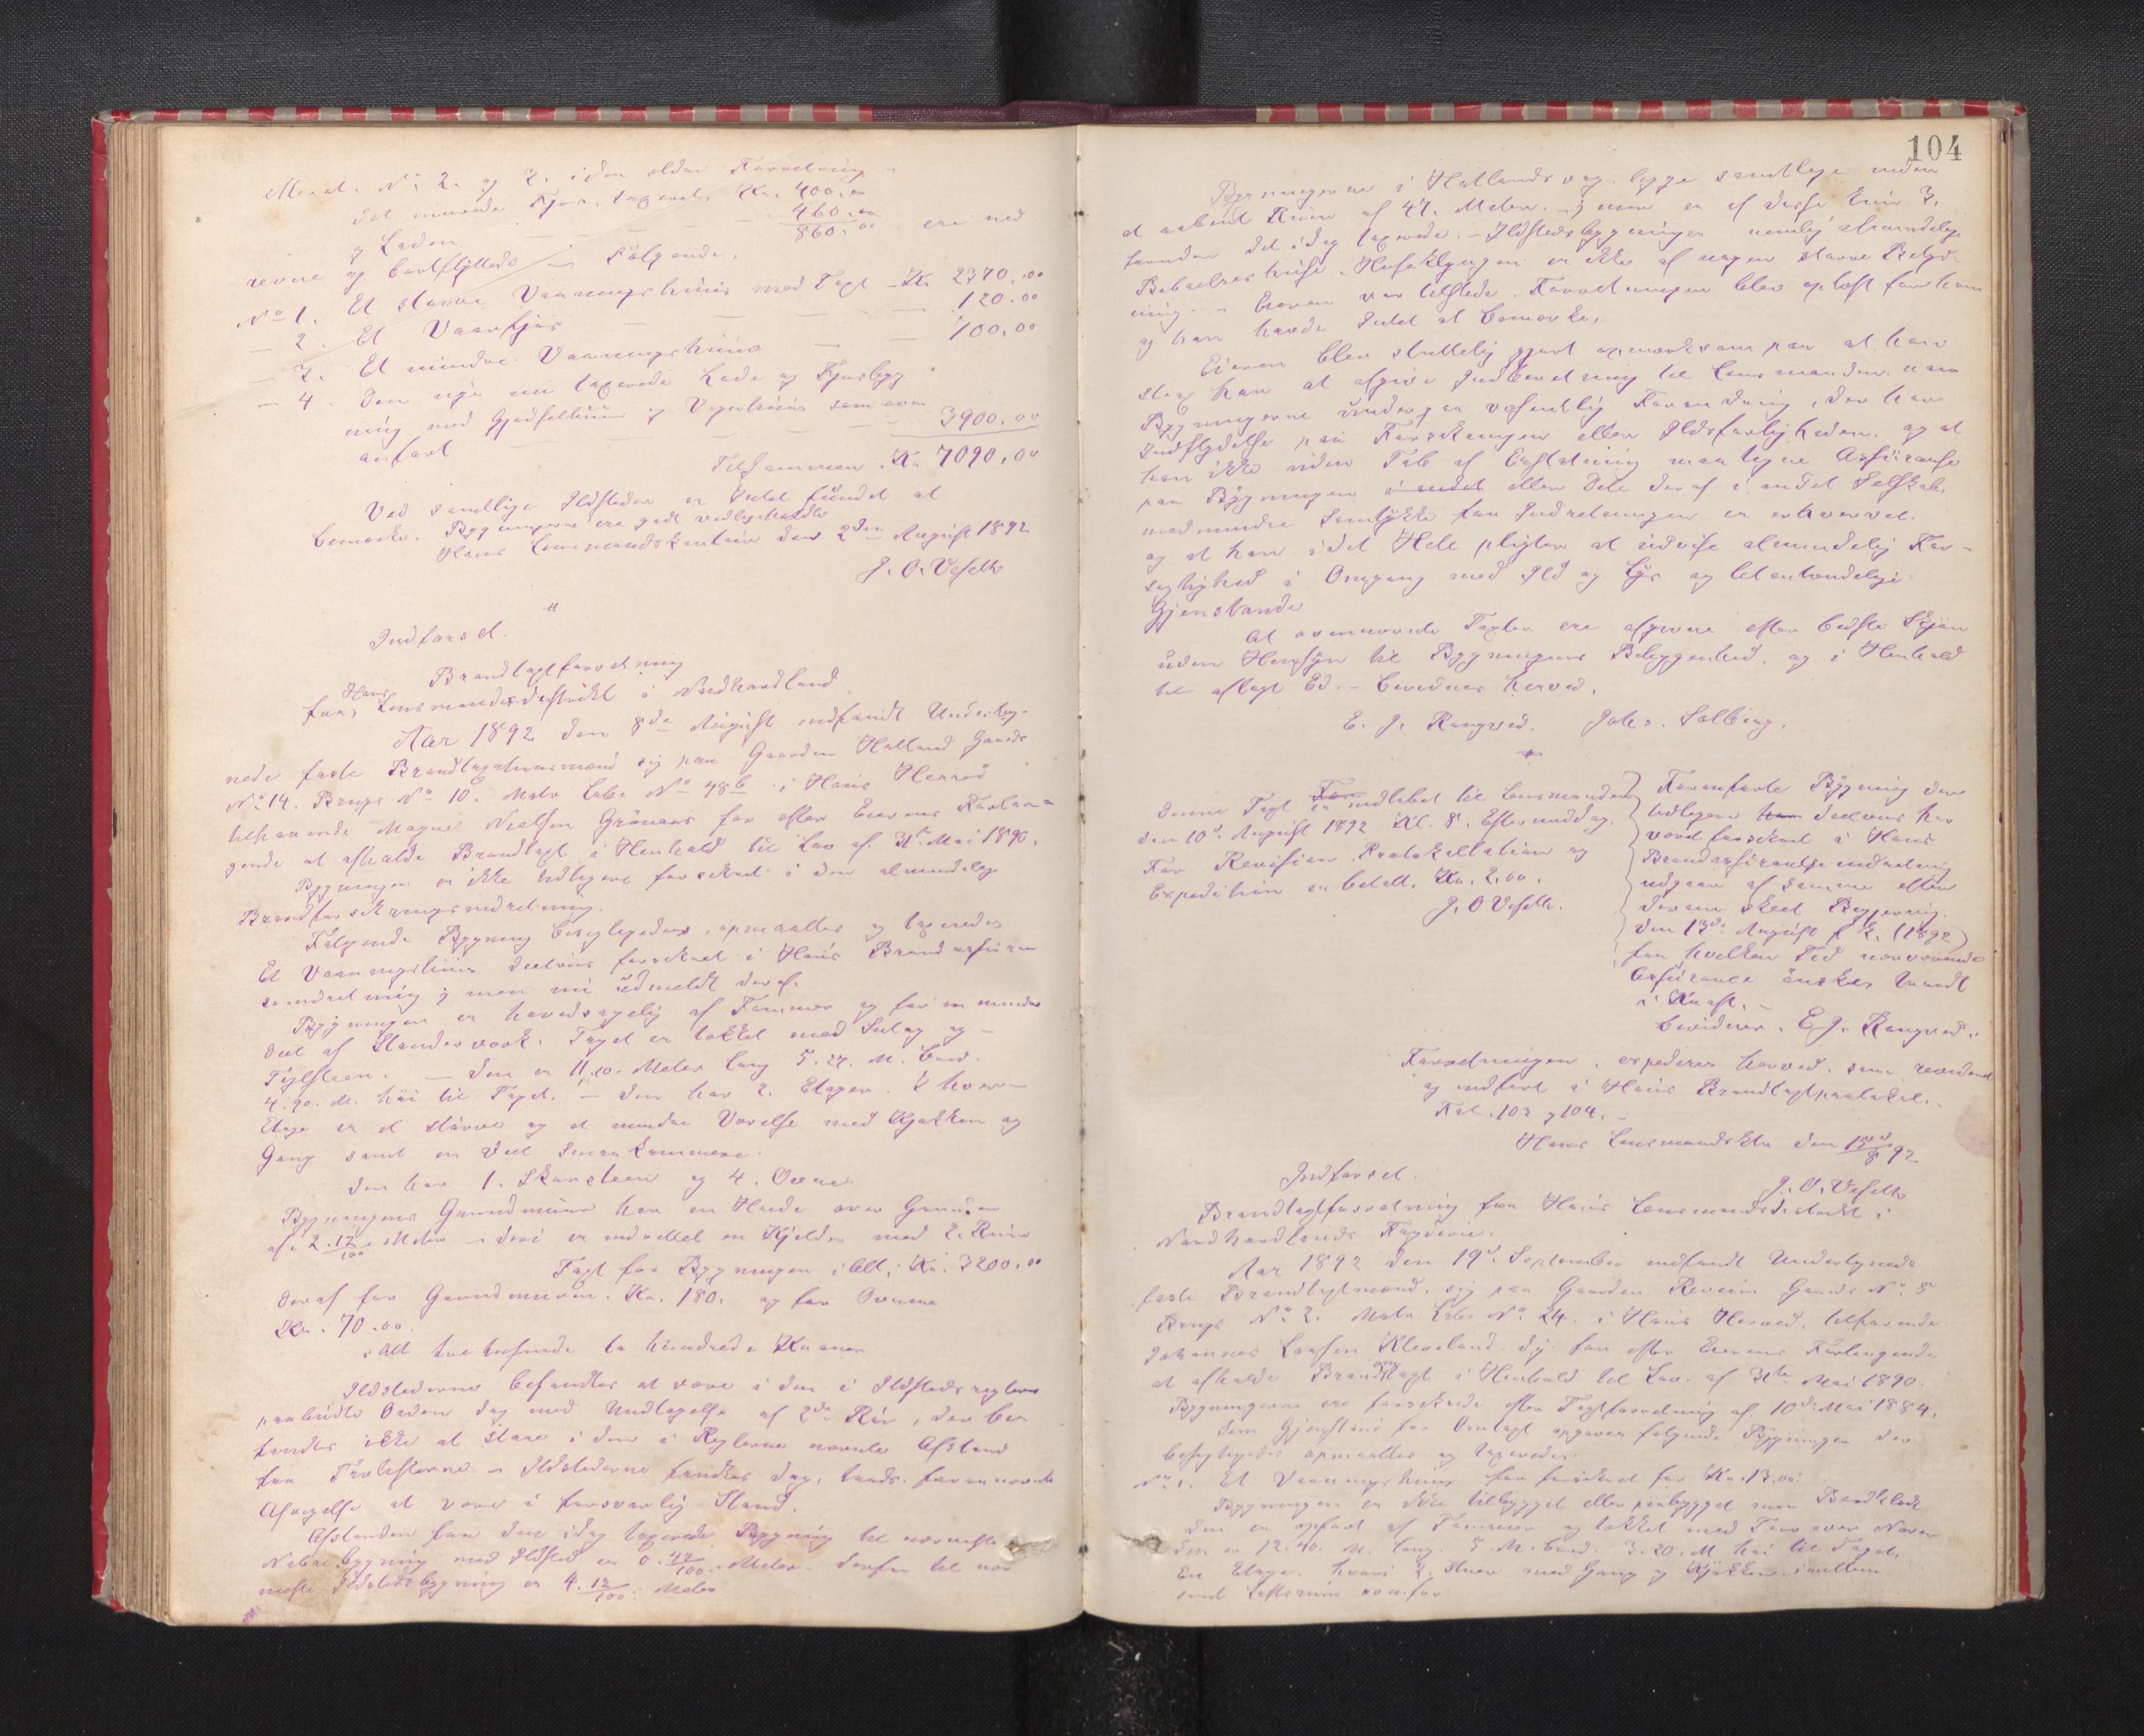 Merat. No 2. og 3. i den ældre Forretning
det murede Fjøs, taxeret, Kr. 400.00
og Laden 460.00
860.00 ere ned
revne og bortflyttede — Følgende,
No 1. Et større Vaaningshuus med Taxt - Kr 2370.00
- 2. Et Vaarfjøs — 120.00
- 3. Et mindre Vaaningshuus — 700.00
- 4. Den nye nu taxerede Lade og Fjøsbyg
ning med Gjødselhuus og Vognhuus som oven
anført 3900.00
Tilsammen. Kr 7090.00
Ved samtlige Ildsteder er Intet fundet at
bemærke. Bygningerne ere godt vedligeholdte
Haus Lensmandskontoir den 2den August 1892
J. O. Vefelh
Indførsel.
Brandtaxtforretning
fra Haus Lensmandsdistrikt i Nordhordland
Aar 1892 den 8de August indfandt Underteg-
nede faste Brandtaxationsmænd sig paa Gaarden Hatland Gaards
No 14. Brugs No 10. Matr Løbe No 48b i Haus Herred
tilhørende Magne Nielsen Grønaas for efter Eierens Forlan-
gende at afholde Brandtaxt i Henhold til Lov af 31te Mai 1890.
Bygningen er ikke tidligere forsikret i den almindelige
Brandforsikringsindretning.
Følgende Bygning besigtigedes, opmaaltes og taxeredes
Et Vaaningshuus deelvis forsikret i Haus Brandassuran
ceindretning; men nu udmeldt deraf.
Bygningen er hovedsagelig af Tømmer og for en mindre
Deel af Standerværk. Taget er tækket med Sutag og
Tiglsteen. — Den er 11.10. Meter lang 5.27. M. bred.
4.90. M. høi til Taget. — Den har 2. Etager. I hver
Etage er et større og et mindre Værelse med Kjøkken og
Gang samt en Deel Smaakammere.
Den har 1. Skorsteen og 4. Ovne.
Bygningens Grundmuur har en Høide over Grunden
af 2.12/100 Meter - deri er indrettet en Kjelder med 2. Rum
Taxt for Bygningen i Alt; Kr. 3200.00
Deraf for Grundmuren. Kr. 180. og for Ovnene
Kr. 70.00.
i Alt tre tusinde to hundrede Kroner
Ildstederne befandtes at være i den i Ildstedsreglerne
paabudte Orden dog med Undtagelse af 2de Rør, der be
fandtes ikke at staae i den i Reglerne nævnte Afstand
fra Trælisterne - Ildstederne fandtes dog, trods forannævnte
Afvigelse at være i forsvarlig Stand.
Afstanden fra den idag taxerede Bygning til nærmeste
Nabobygning med Ildsted er 0.42/100 Meter. derfra til nær
meste Ildstedsbygning er 4.12/100 Meter
104
Bygningerne i Hatlandsvaag ligge samtlige inden
et aabent Rum af 47. Meter. -; men er af disse kun 3,
foruden det idag taxerede, - Ildstedsbygninger nemlig almindelige
Beboelseshuse. Huseklyngen er ikke af nogen større Betyd-
ning - Eieren var tilstede. Forretningen blev oplæst for ham
og han havde Intet at bemærke.
Eieren blev sluttelig gjort opmærksom paa at han
strax har at afgive Indberetning til Lensmanden naar
Bygningerne undergaa væsentlig Forandring, der har
Indflydelse paa Forsikringen eller Ildsfarligheden og at
han ikke uden Tab af Erstatning maa tegne Assurance
paa Bygningen i andet eller Dele deraf i andet Selskab,
medmindre Samtykke fra Indretningen er erhvervet.
og at han i det Hele pligter at udvise almindelig For-
sigtighed i Omgang med Ild og Lys og letantændelige
Gjenstande
At ovennævnte Taxter ere afgivne efter bedste Skjøn
uden Hensyn til Bygningens Beliggenhed, og i Henhold
til aflagt Ed. - bevidnes herved.
E. J. Rongved. Johs. Solberg.
Denne Taxt er indløbet til Lensmanden
den 10de August 1892 Kl. 8. Eftermiddag.
For Revision Protokollation og
Expedition er betalt. Kr. 2.00.
J. O Vefelh.
Foranførte Bygning der
tidligere har deelvis har
været forsikret i Haus
Brandassuranceindretning
udgaar af samme efter
derom skeet Begjæring.
den 13de August d. A. (1892)
fra hvilken Tid nærværende
Assurance ønskes traadt
i Kraft. -
bevidner. E. J. Rongved.
Forretningen expederes herved, som revideret
og indført i Haus Brandtaxtprotokol.
Fol. 103 og 104. -
Haus Lensmandsktr den 15de/8 92
J. O. Vefelh
Indførsel.
Brandtaxtforretning fra Haus Lensmandsdistrikt i
Nordhordlands Fogderie.
Aar 1892 den 19de September indfandt Undertegnede
faste Brandtaxtmænd, sig paa Gaarden Revein Gaards No 8
Brugs No 2. Matr. Løbe No 24. i Haus Herred, tilhørende
Johannes Larsen Kleveland. dy. for efter Eierens Forlangende
at afholde Brandomtaxt i Henhold til Lov. af 31te Mai 1890.
Bygningerne ere forsikrede efter Taxtforretning af 10de Mai 1884.
Som Gjenstand for Omtaxt opgaves følgende Bygninger der
besigtigedes opmaaltes og taxeredes.
No 1. Et Vaaningshuus før forsikret for Kr. 1300.
Bygningen er ikke tilbygget eller paabygget men Bordklædt
den er opført af Tømmer og tækket med Torv over Næver
den er 12.40. M. lang. 5. M. bred. 3.20. M høi til Taget.
En Etage. hvori 2. Stuer med Gang og Kjøkken imellem
samt Loftsrum ovenfor